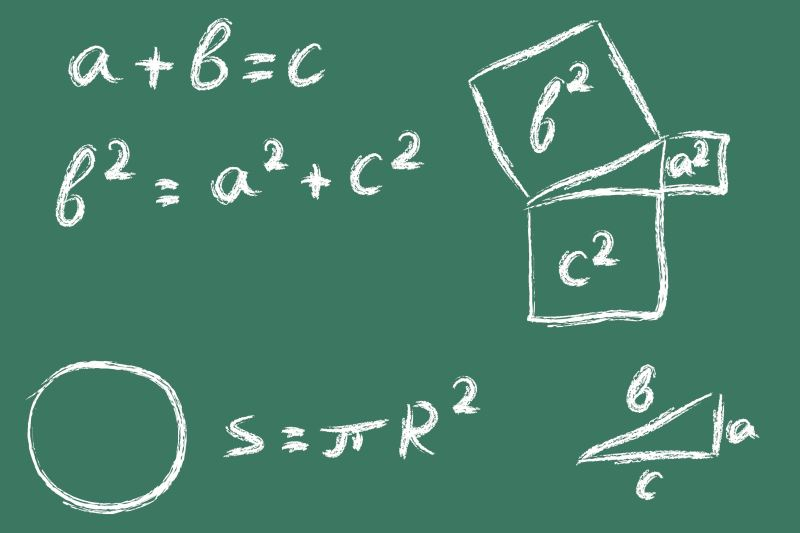 a + b = c
b² = a² + c²
b²
a²
c²
S = πR²
b
a
c